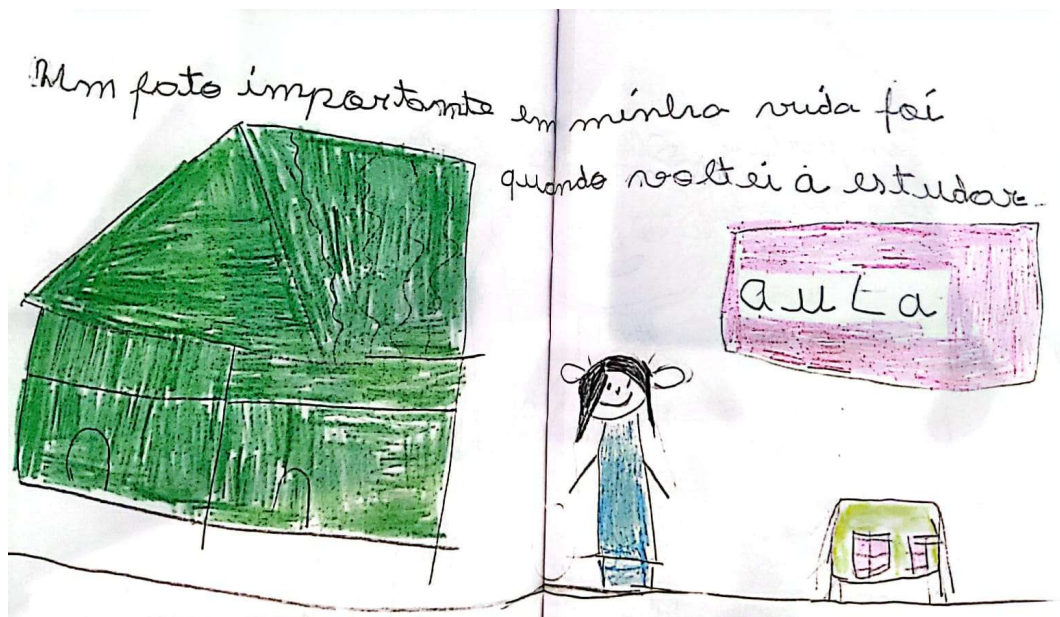 Um fato importante em minha vida foi
quando voltei à estudar.
aula